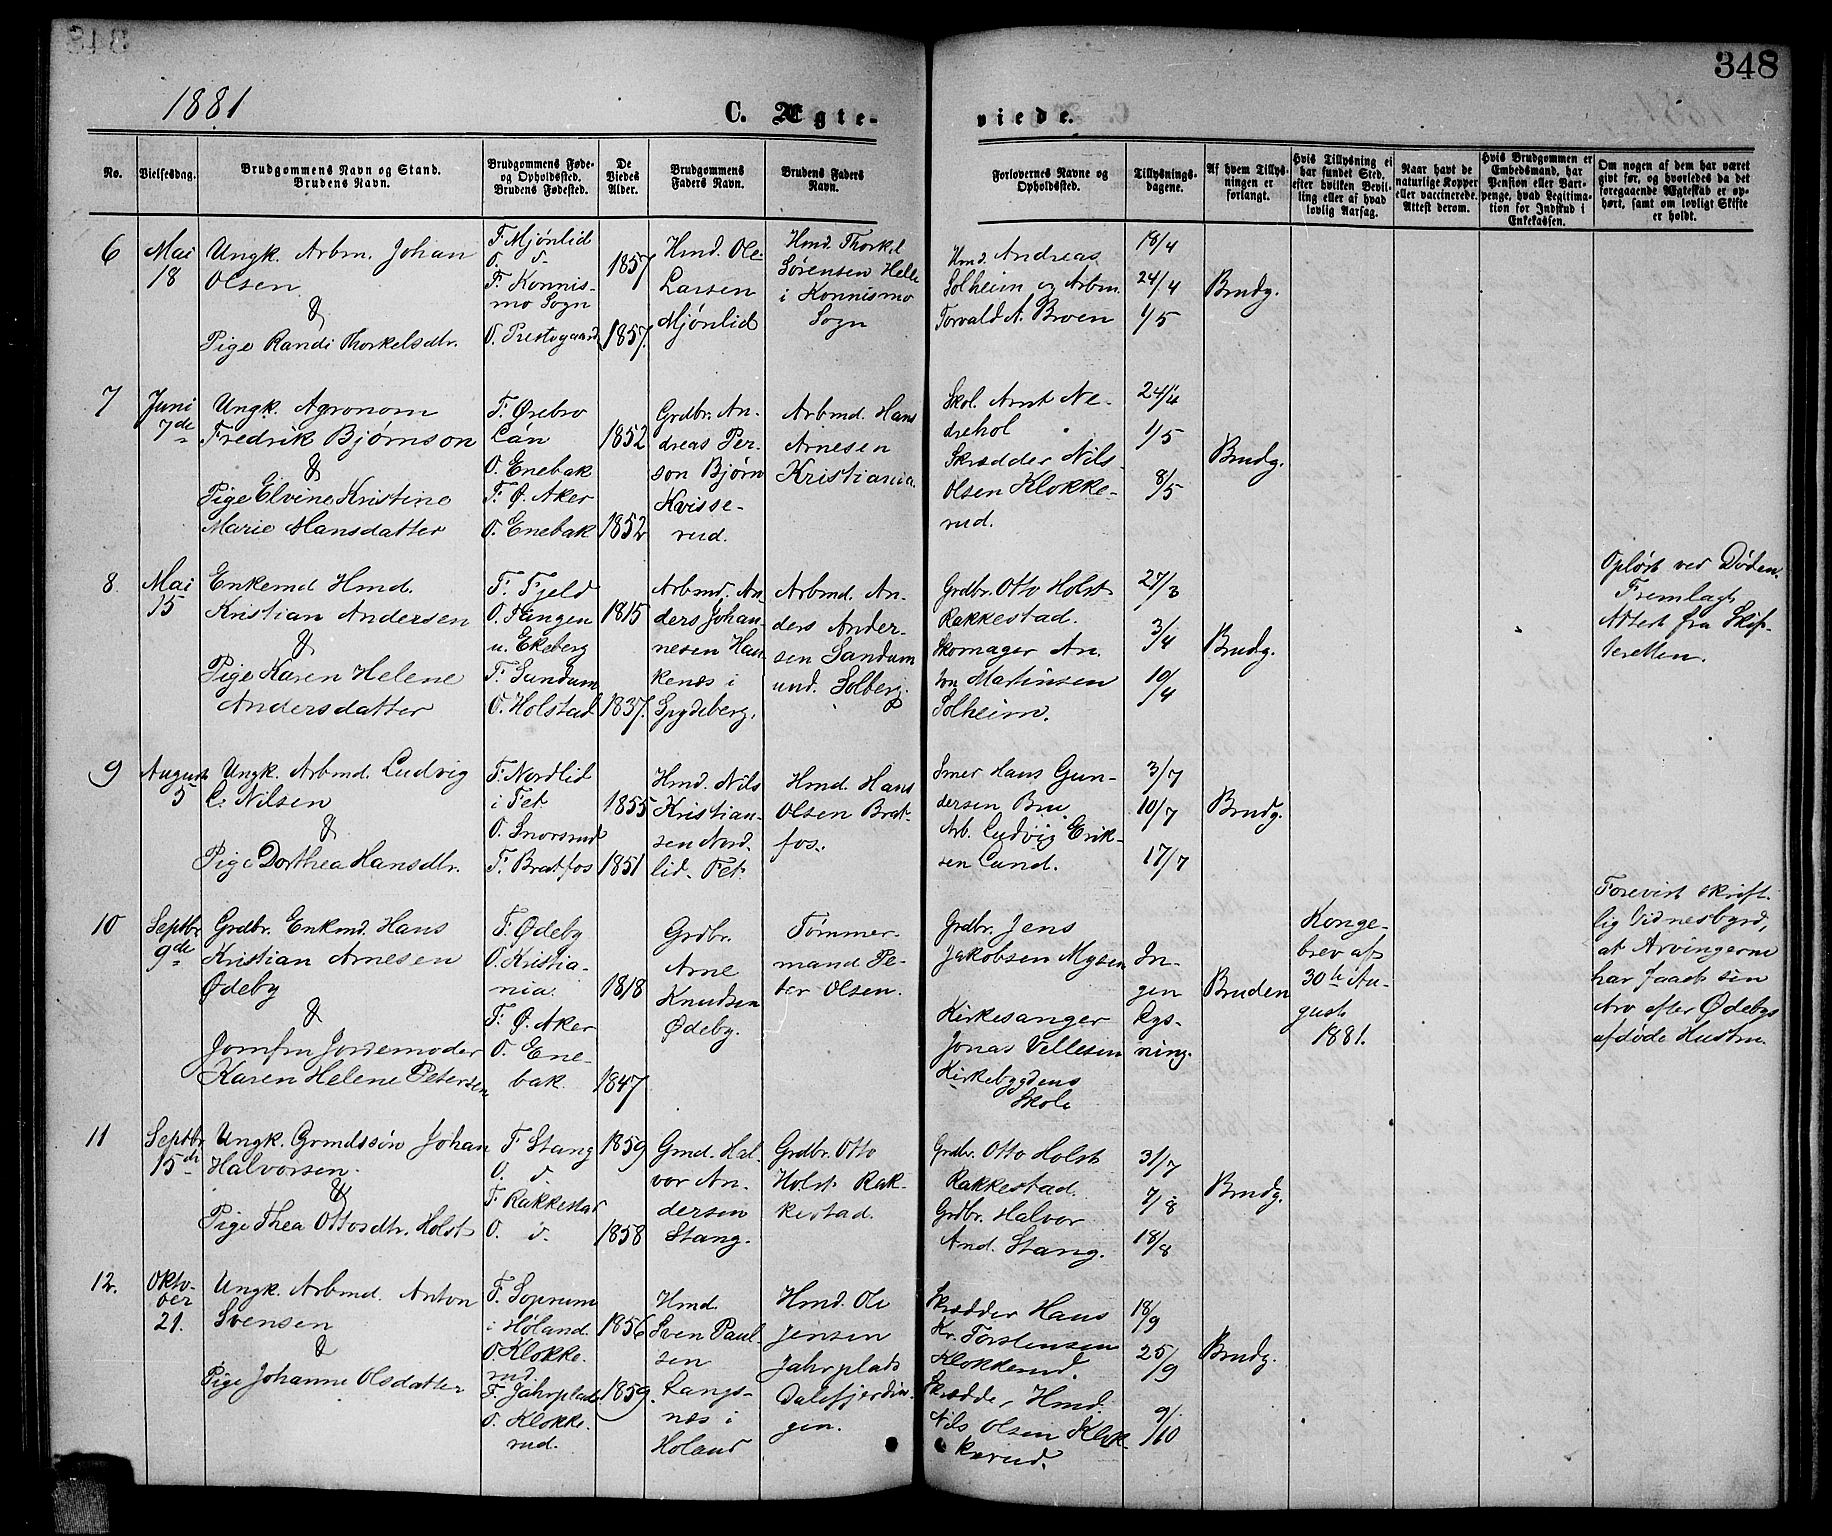 348
1881
C. Ægte-
viede.
No.
Vielsesdag.
Brudgommens Navn og Stand.
Brudens Navn.
Brudgommens Føde-
og Opholdssted.
Brudens Fødested.
De
Viedes
Alder.
Brudgommens
Faders Navn.
Brudens Faders
Navn.
Forlovernes Navne og
Opholdssted.
Tillysnings-
dagene.
Af hvem Tillys-
ningen er
forlangt.
Hvis Tillysning ei
har fundet Sted,
efter hvilken Bevil-
ling eller af hvad
lovlig Aarsag.
Naar havt de
naturlige Kopper
eller vaccinerede.
Attest derom.
Hvis Brudgommen er
Embedsmand, har
Pension eller Vart-
penge, hvad Legitima-
tion for Indskud i
Enkekassen.
Om nogen af dem har været
gift før, og hvorledes da det
foregaaende Ægteskab er op-
hørt, samt om lovligt Skifte
er holdt.
6
Mai
18
Ungk. Arbm. Johan
Olsen
&
Pige Randi Thorkelsdtr.
F. Mjønlid
O. d.
F. Konnis-
mo Sogn
O. Prestegaard
1857
1857.
Hmd. Ole
Larsen
Mjønlid
Hmd. Thorkel
Sørensen Helle
i Konnismo
Sogn
Hmd. Andreas
Solheim og Arbm.
Torvald A. Broen
18/4
24/4
1/5
Brudg.
7
Juni
7de
Ungk. Agronom
Fredrik Bjørnson
&
Pige Elvine Kristine
Marie Hansdatter
F. Ørebro
Län
O. Enebak
F. Ø. Aker
O. Enebak
1852
1852
Grdbr. An-
dreas Per-
son Bjørn
Kvisse-
rud.
Arbmd. Hans
Arnesen
Kristiania.
Skol. Arnt Ne-
drehol
Skrædder Nils
Olsen Klokke-
rud.
24/4
1/5
8/5
Brudg.
8.
Mai
15
Enkemd Hmd.
Kristian Andersen
&
Pige Karen Helene
Andersdatter
F. Fjeld
O. Tangen
u. Ekeberg
F. Sandum
O. Holstad
1815
1837.
Arbmd. An-
ders Johan-
nesen Han-
kenæs i
Spydeberg.
Arbmd. An-
ders Ander-
sen Sandum
und. Solberg.
Grdbr. Otto Holst
Rakkestad.
Skomager An-
ton Martinsen
Solheim.
27/3
3/4
10/4
Brudg.
Opløst ved Døden.
Fremlagt
Attest fra Skif-
teretten.
9
August
5
Ungk. Arbmd. Ludvig
L. Nilsen
&
Pige Dorthea Hansdtr.
F. Nordlid
i Fet
O. Snorsrud
F. Bratfos
1855
1851
Hmd. Nils
Kristian-
sen Nord-
lid. Fet.
Hmd. Hans
Olsen Brat-
fos.
Smed Hans Gun-
dersen Bru
Arb. Ludvig Erik-
sen Lund.
3/7
10/7
17/7
Brudg.
10
Septbr
9de
Grdbr. Enkmd. Hans
Kristian Arnesen
Ødeby
&
Jomfru Jordemoder
Karen Helene Petersen
F. Ødeby
O. Kristia-
nia.
F. Ø. Aker
O. Ene-
bak.
1818
1847
Grdbr.
Arne
Knudsen
Ødeby.
Tømmer-
mand Pe-
ter Olsen.
Grdbr. Jens
Jakobsen Mysen
Kirkesanger
Jonas Vellesen
Kirkebygdens
Skole
In-
gen
Lys-
ning.
Bruden
Konge-
brev af
30te Au-
gust
1881.
Forevist skrift-
lig Vidnesbyrd,
at Arvingerne
har faaet sin
Arv efter Ødebys
afdøde Hustru.
11
Septbr
15de
Ungk. Grmdssøn Johan
Halvorsen
&
Pige Thea Ottosdtr. Holst
F. Stang
O. d.
F. Rakkestad
O. d.
1859
1858
Gmd. Hal-
vor An-
dersen
Stang.
Grdbr. Otto
Holst Rak-
kestad.
Grdbr. Otto Holst
Rakkestad.
Grdbr. Halvor
And. Stang.
31/7
7/8
18/8
Brudg.
12.
Okto-
ber
21.
Ungk. Arbmd. Anton
Svensen
&
Pige Johanne Olsdatter
F. Soprum
i Høland.
O. Klokke-
rud.
F. Jahrplads
O. Klokke-
rud.
1856
1859.
Hmd.
Sven Paul-
sen
Langs-
næs i
Høland
Hmd. Ole
Jensen
Jahrplads
Dalefjerdin-
gen.
Skrædder Hans
Kr. Torstensen
Klokkerud.
Skrædder Hmd.
Nils Olsen Klok-
kerud.
18/9
25/9
9/10
Brudg.